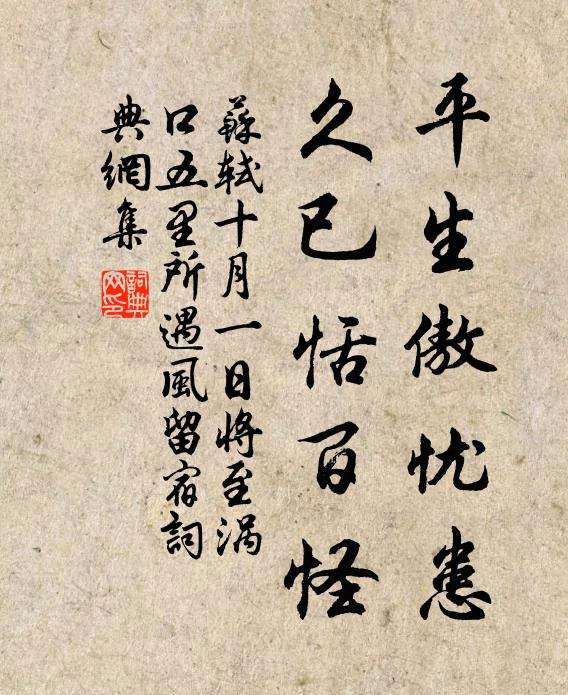 平生傲忧患
久已恬百怪
蘇軾十月一日將至涡
口五里所遇風留宿詞
典網集
詞典
网印